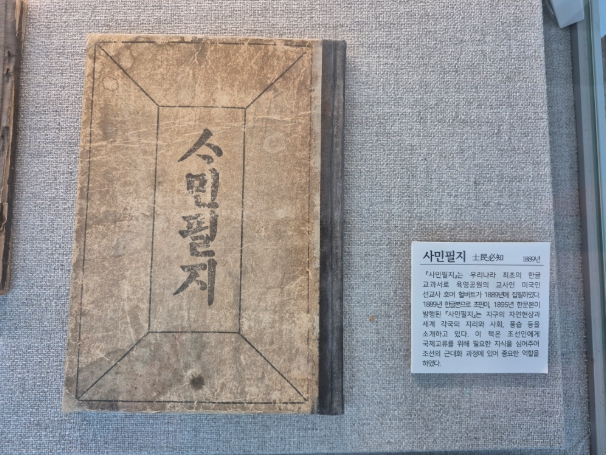 ᄉᆞ민필지
사민필지 士民必知 1889년
『사민필지』는 우리나라 최초의 한글
교과서로 육영공원의 교사인 미국인
선교사 호머 헐버트가 1889년에 집필하였다.
1889년 한글본으로 초판이, 1895년 한문본이
발행된 『사민필지』는 지구의 자연현상과
세계 각국의 지리와 사회, 풍습 등을
소개하고 있다. 이 책은 조선인에게
국제교류를 위해 필요한 지식을 심어주어
조선의 근대화 과정에 있어 중요한 역할을
하였다.